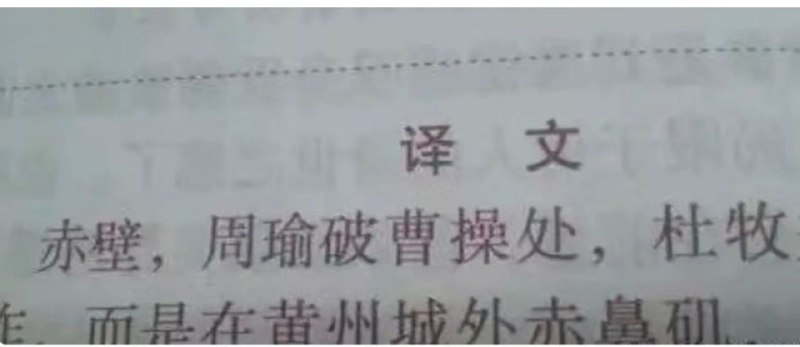 译 文
赤壁，周瑜破曹操处，杜牧
作，而是在黄州城外赤鼻矶